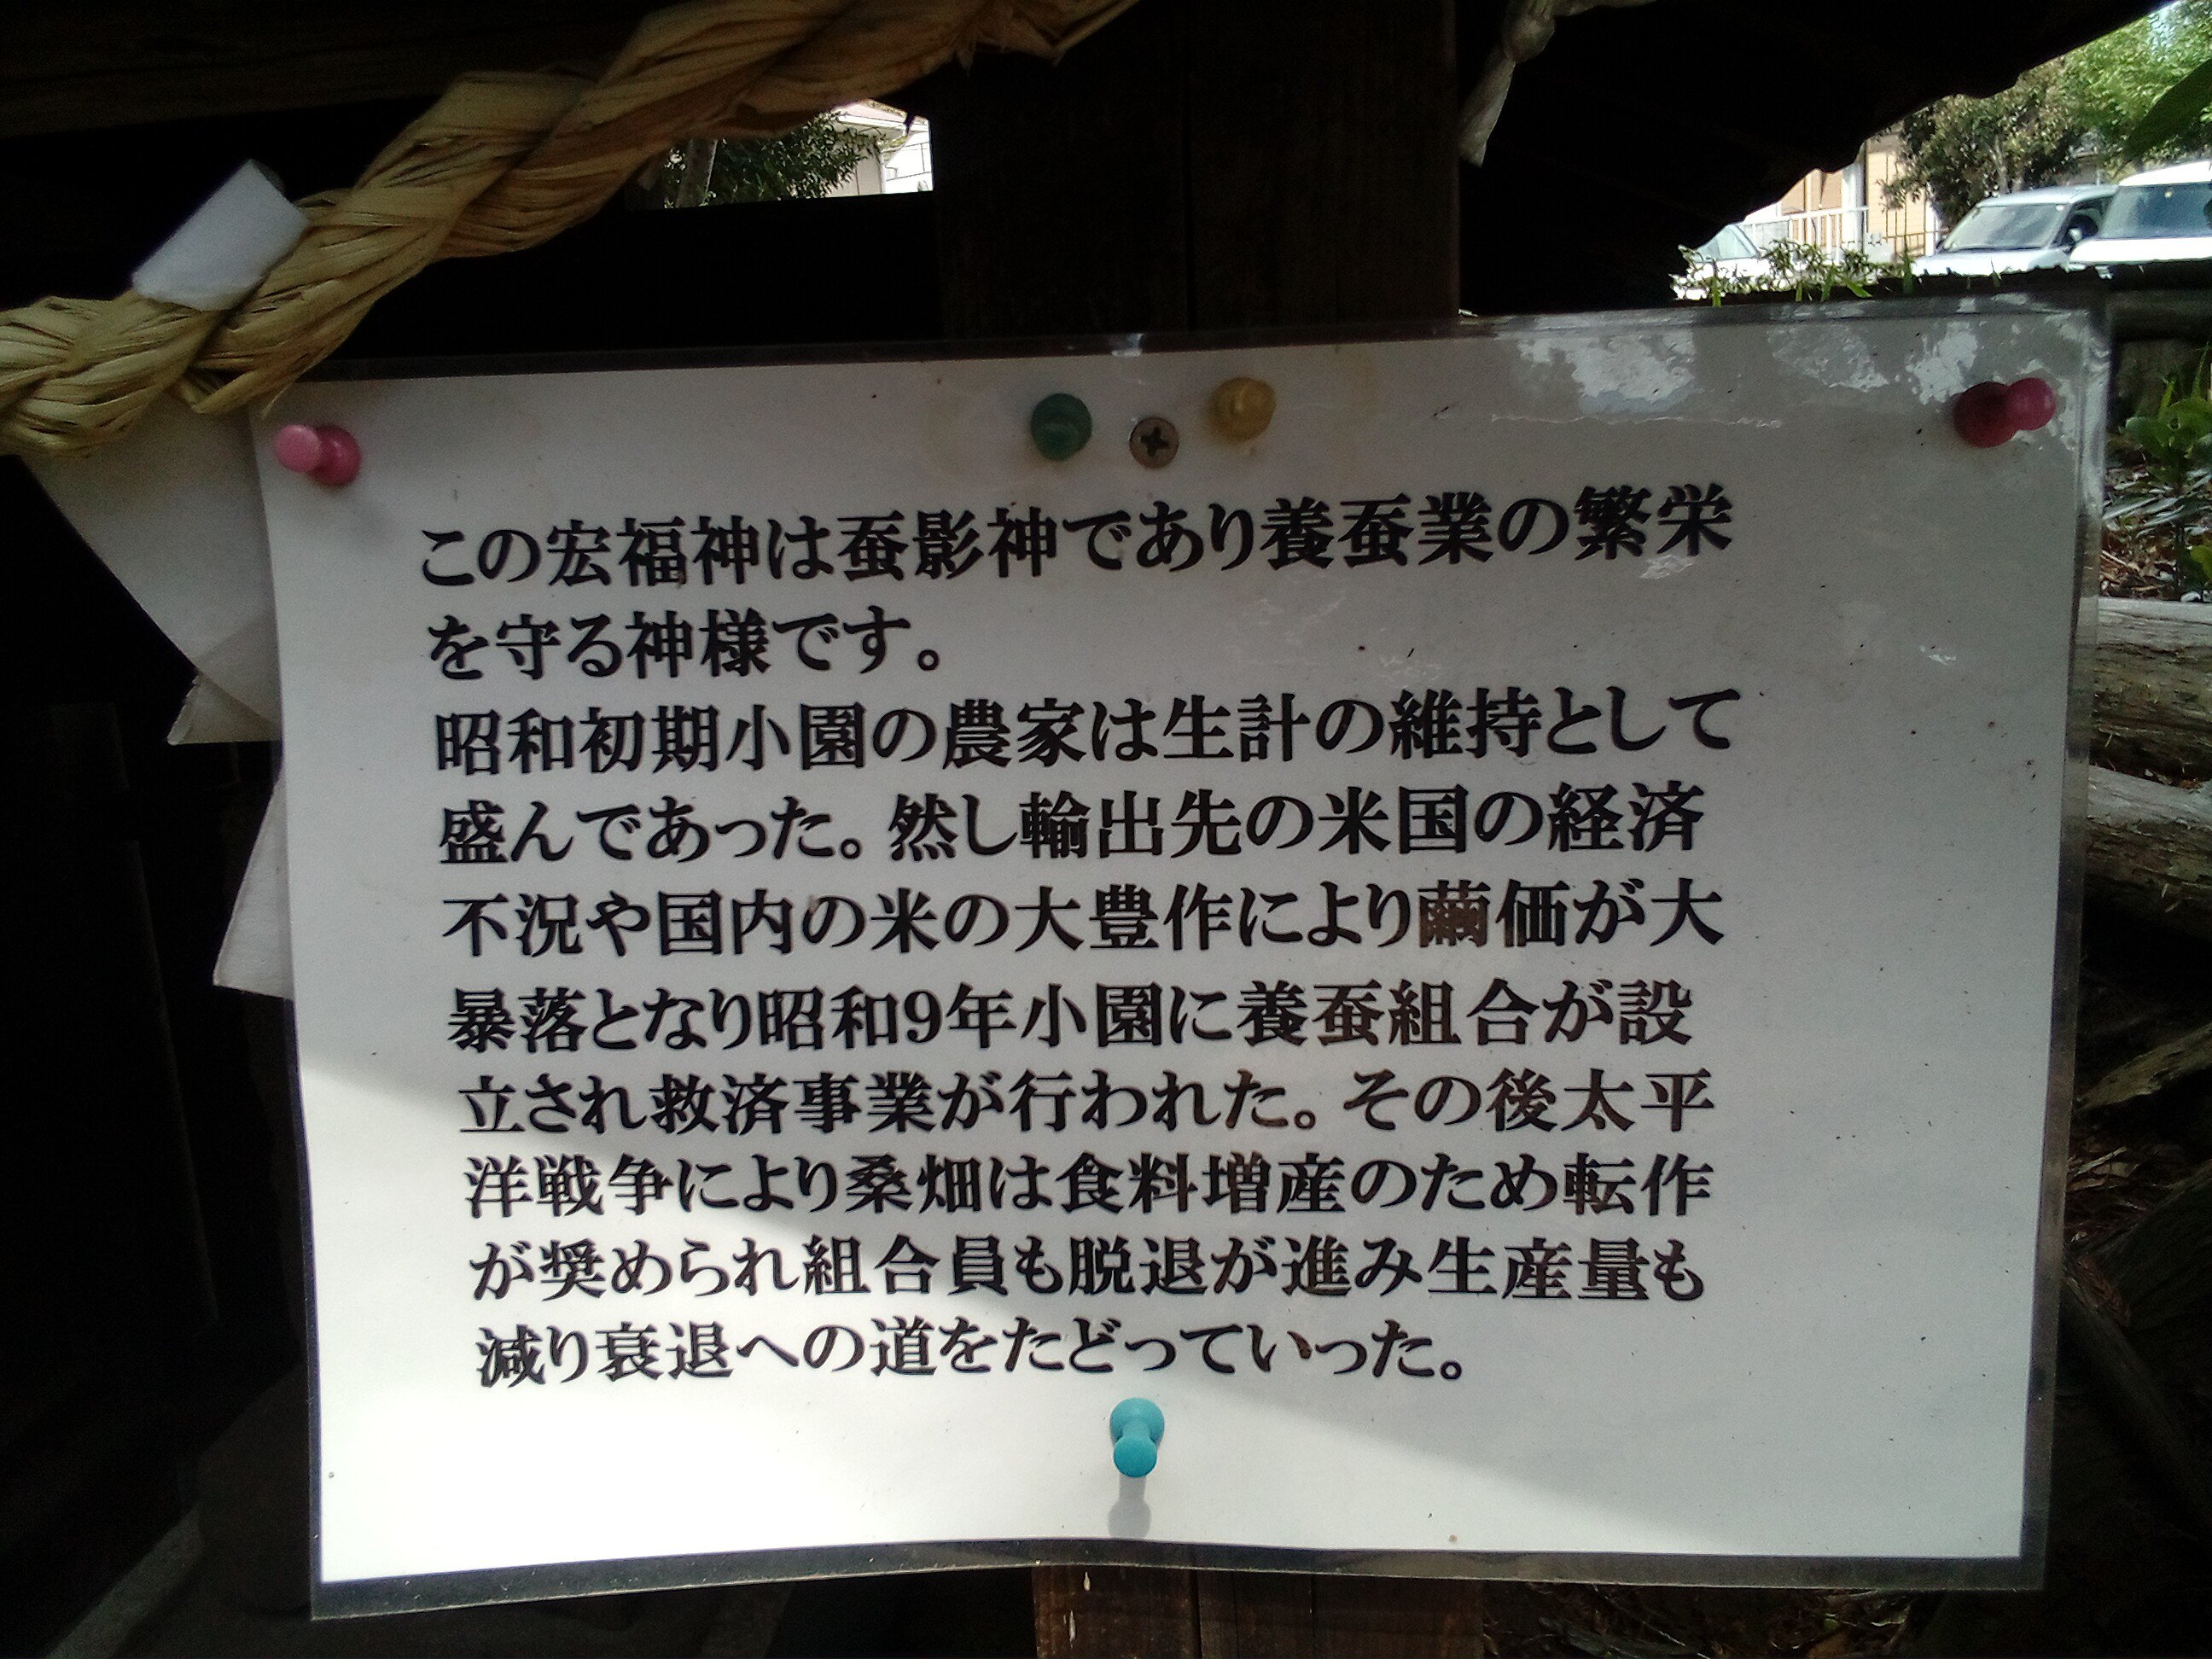 この宏福神は蚕影神であり養蚕業の繁栄
を守る神様です。
昭和初期小園の農家は生計の維持として
盛んであった。然し輸出先の米国の経済
不況や国内の米の大豊作により繭価が大
暴落となり昭和9年小園に養蚕組合が設
立され救済事業が行われた。その後太平
洋戦争により桑畑は食料増産のため転作
が奨められ組合員も脱退が進み生産量も
減り衰退への道をたどっていった。